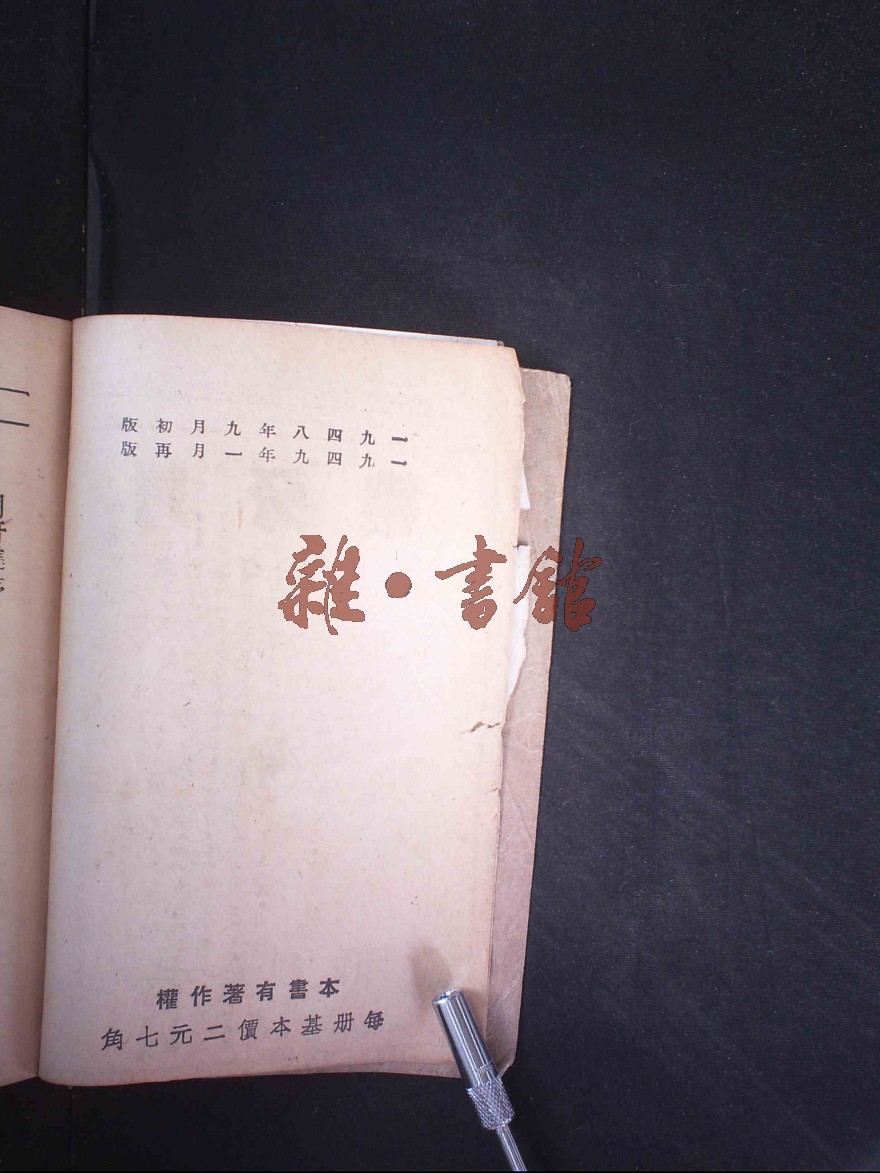 一九四八年九月初版
一九四九年一月再版
雜·書館
本書有著作權
每册基本價二元七角